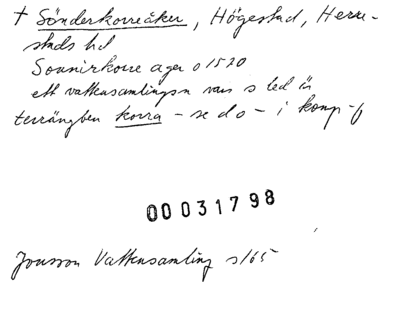 † Sönderkorreåker, Högestad, Herre-
stads hd
Sonnirkorre ager o 1520
ett vattensamlingsn vars s led är
terrängben korra - se d o - i komp -
00031798
Jonsson Vattensamling s165